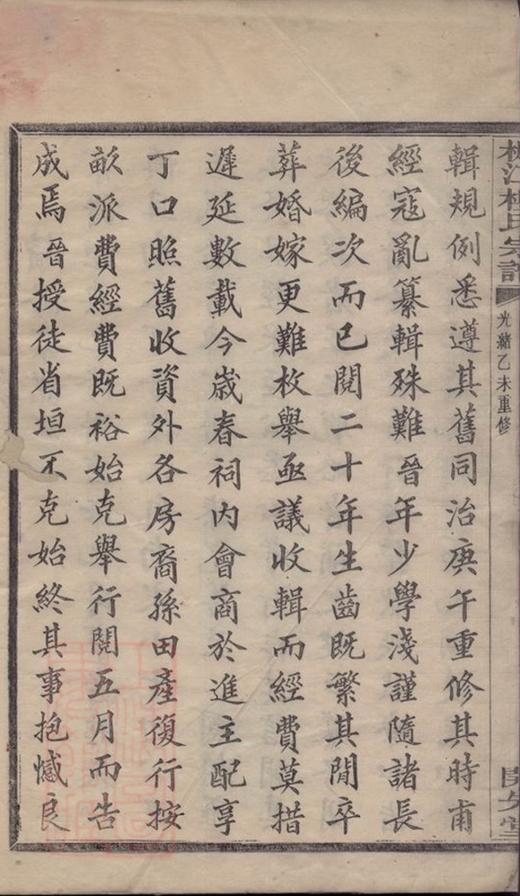 氏宗譜
光緒乙未重修
輯規例悉遵其舊同治庚午重修其時甫
經寇亂纂輯殊難晉年少學淺謹隨諸長
後編次而已閱二十年生齒既繁其間卒
葬婚嫁更難枚舉亟議收輯而經費莫措
遲延數載今歲春祠內會商於進主配享
丁口照舊收資外各房裔孫田產復行按
畝派費經費既裕始克舉行閱五月而告
成焉晉授徒省垣不克始終其事抱憾良